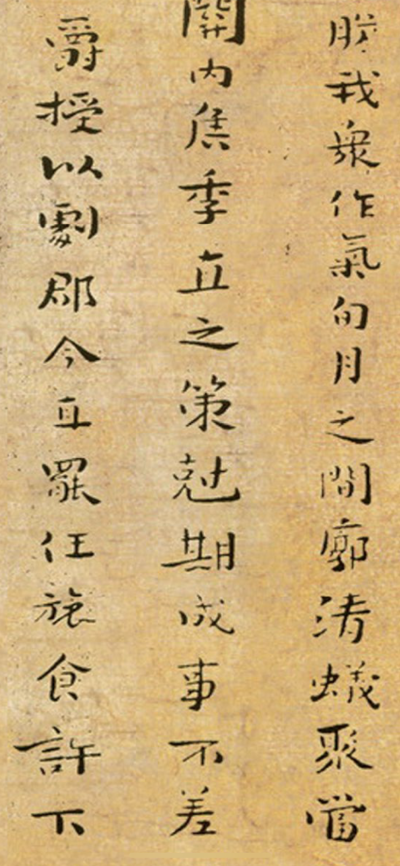 膽我衆作氣旬月之間廓清蟻聚當
關內侯季直之策剋期成事不差
爵授以劇郡今直罷任旅食許下